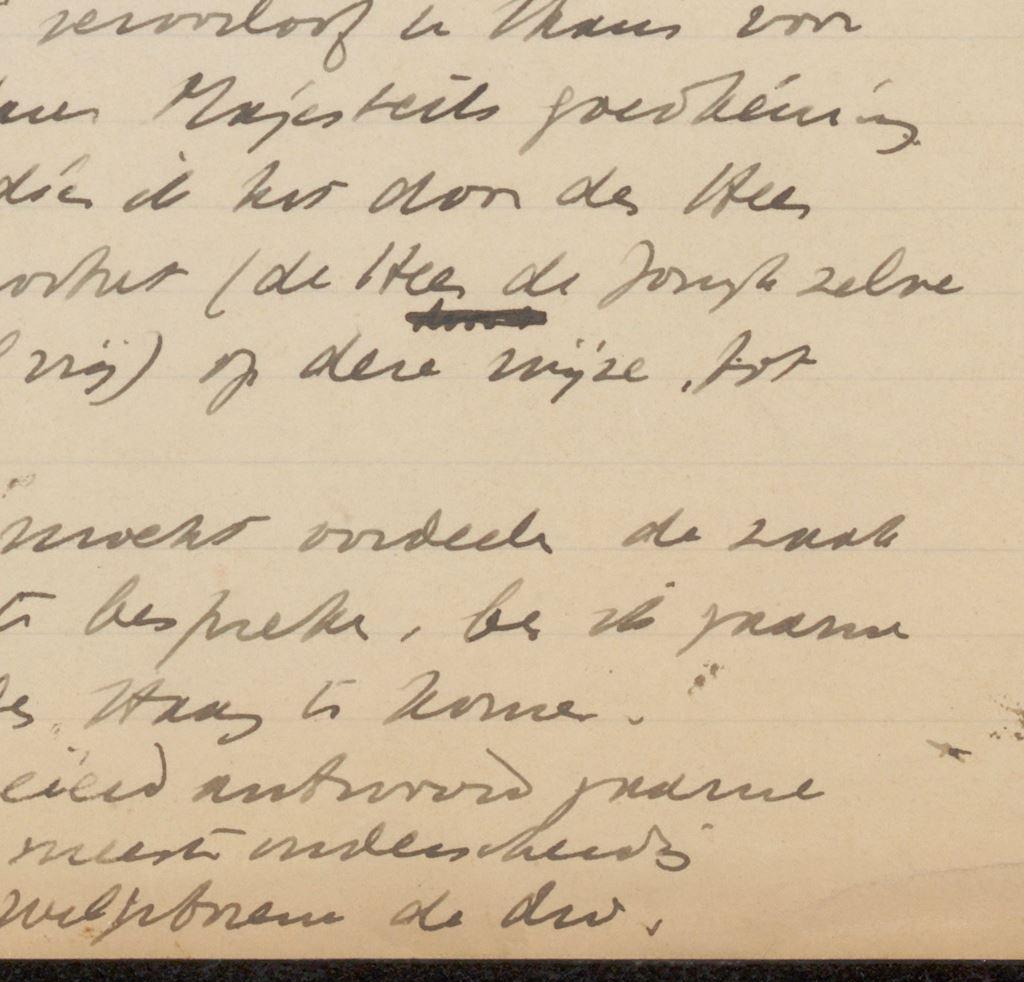 veroorloof u thans voor
Majesteits goedkeuring
dien ik het door den Heer
(de Heer de Jongh zelve
vrij) op deze wijze, tot
mocht oordeelen de zaak
te bespreken, ben ik gaarne
den Haag te komen.
antwoord gaarne
meeste onderscheiding
de dw.